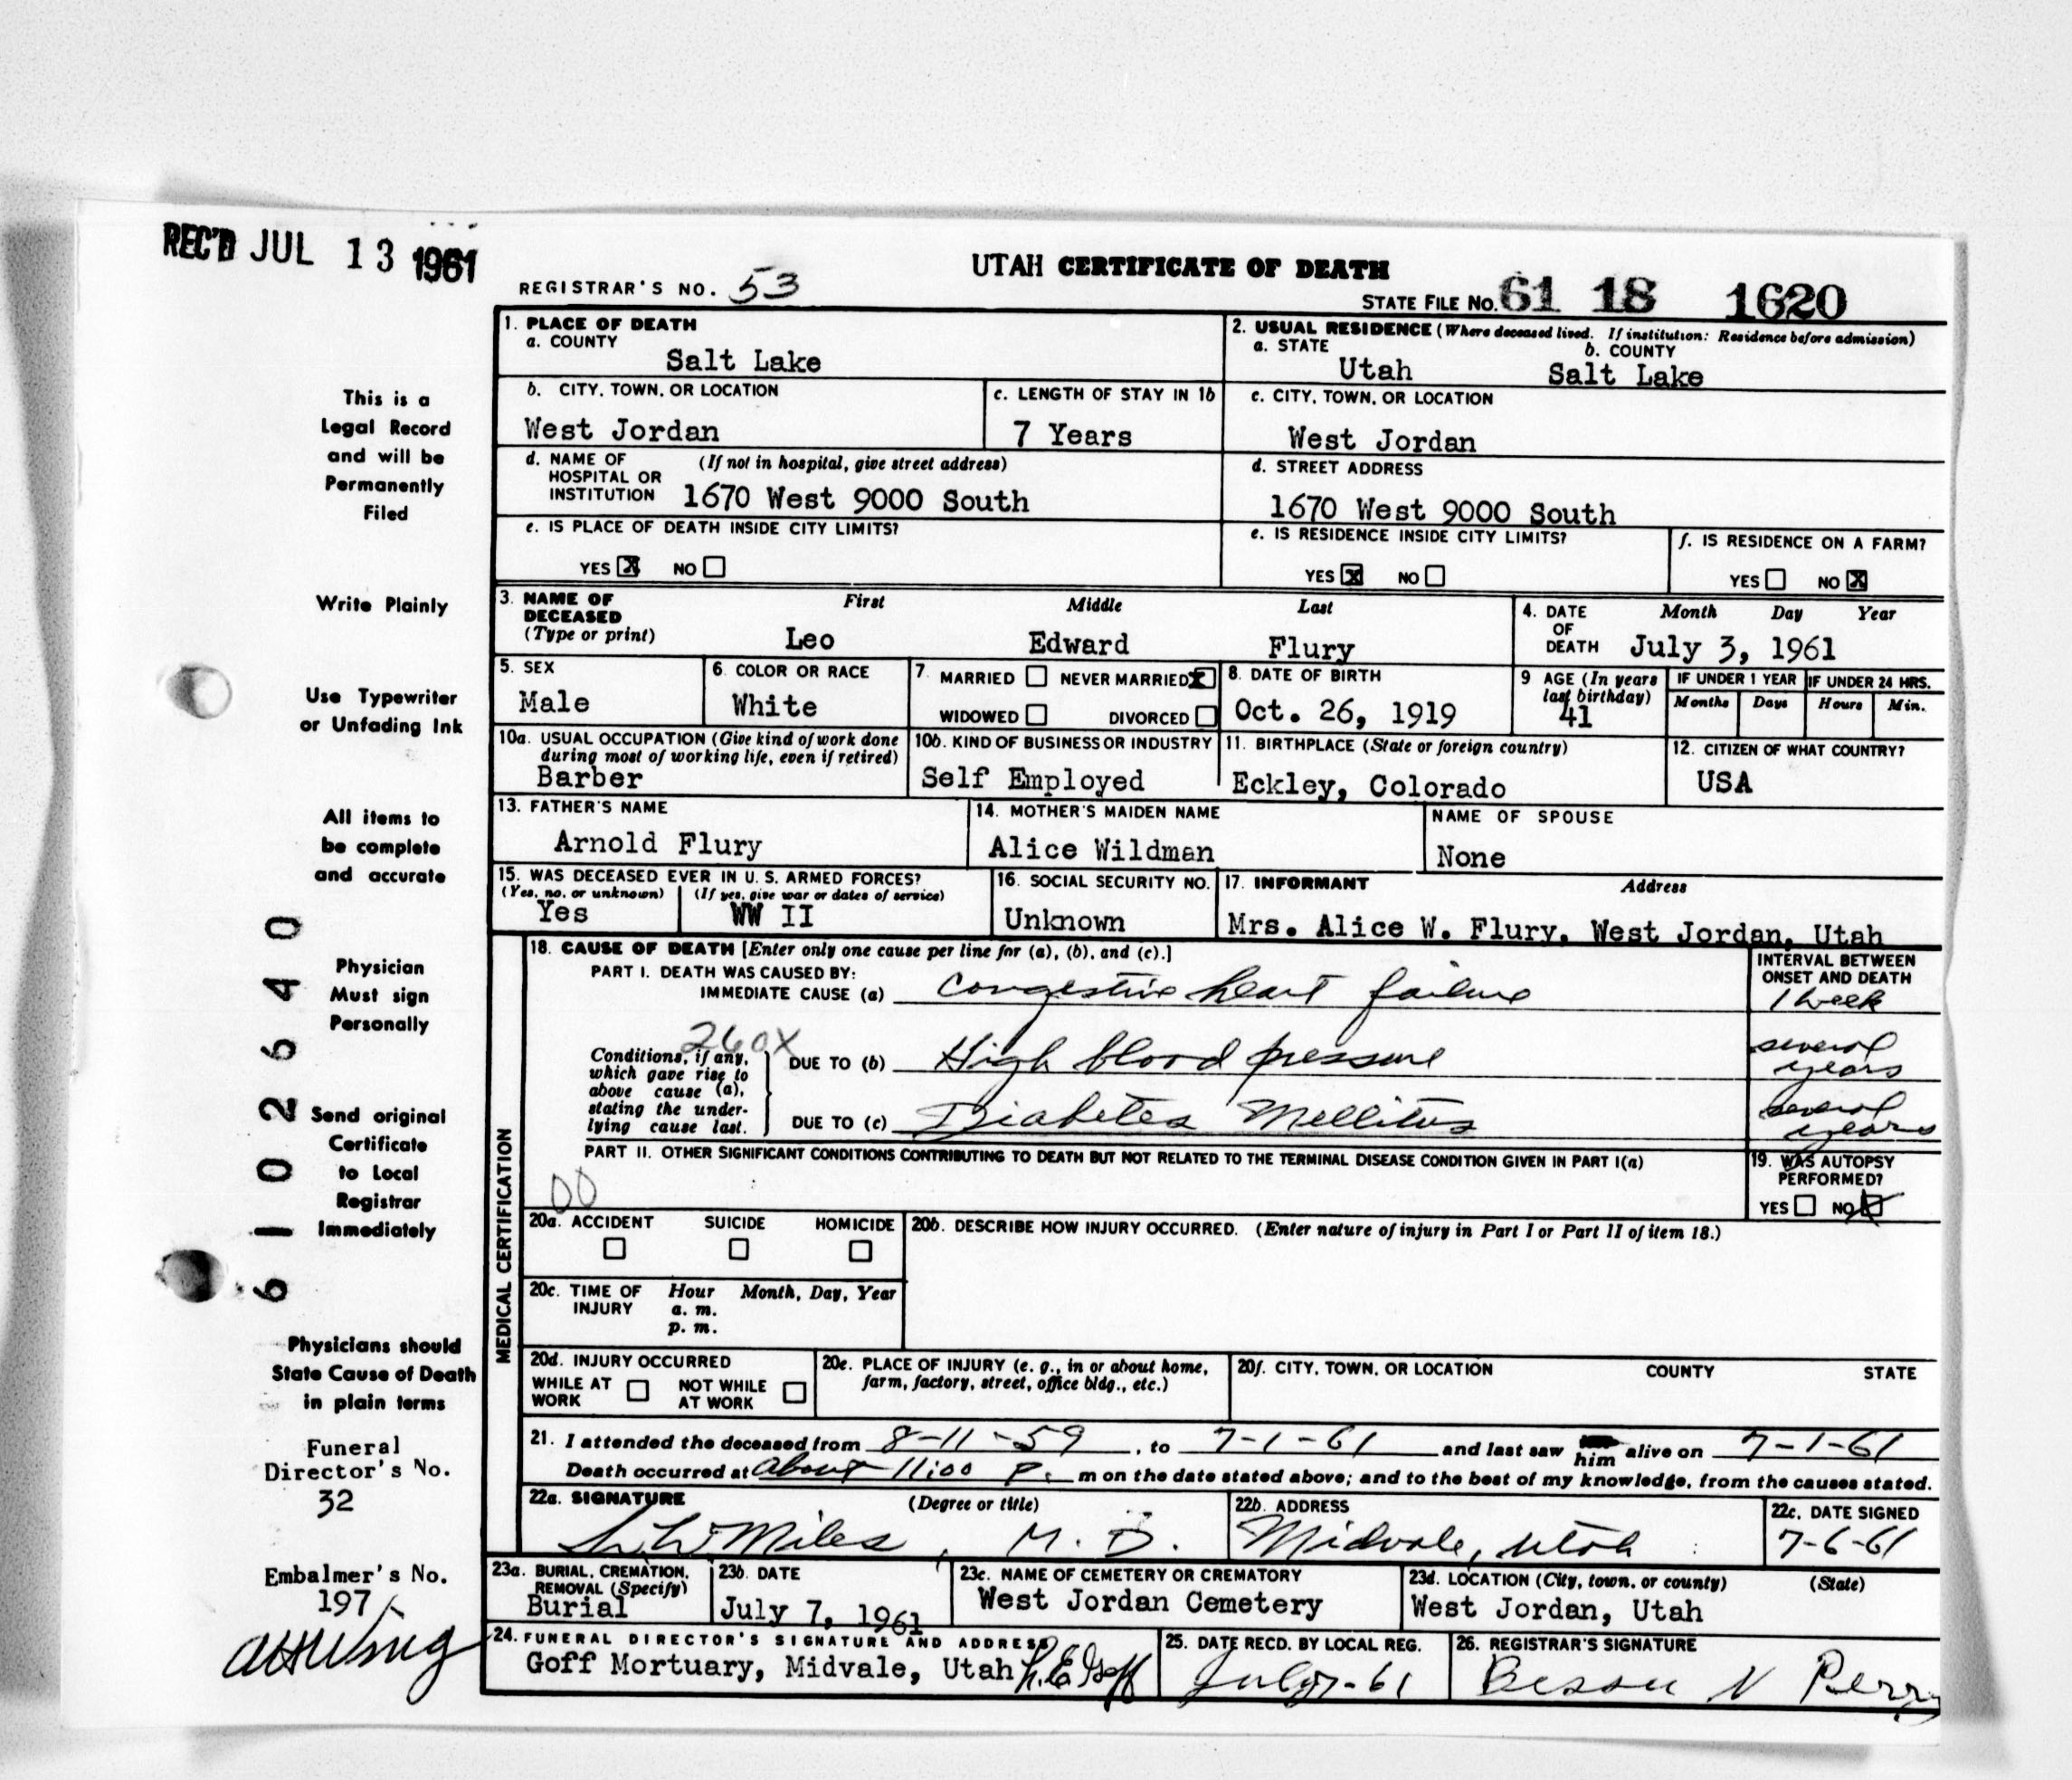 REC'D JUL 13 1961
UTAH CERTIFICATE OF DEATH
REGISTRAR'S NO. 53
STATE FILE NO. 61 18 1620
This is a
Legal Record
and will be
Permanently
Filed
Write Plainly
Use Typewriter
or Unfading Ink
All items to
be complete
and accurate
Physician
Must sign
Personally
Send original
Certificate
to Local
Registrar
Immediately
Physicians should
State Cause of Death
in plain terms
Funeral
Director's No.
32
Embalmer's No.
197
61026640
1. PLACE OF DEATH
a. COUNTY
Salt Lake
2. USUAL RESIDENCE (Where deceased lived. If institution: Residence before admission)
a. STATE b. COUNTY
Utah Salt Lake
b. CITY, TOWN, OR LOCATION
West Jordan
c. LENGTH OF STAY IN 1b
7 Years
c. CITY, TOWN, OR LOCATION
West Jordan
d. NAME OF (If not in hospital, give street address)
HOSPITAL OR
INSTITUTION 1670 West 9000 South
d. STREET ADDRESS
1670 West 9000 South
e. IS PLACE OF DEATH INSIDE CITY LIMITS?
YES X NO
e. IS RESIDENCE INSIDE CITY LIMITS?
YES X NO
f. IS RESIDENCE ON A FARM?
YES NO X
3. NAME OF First Middle Last
DECEASED
(Type or print) Leo Edward Flury
4. DATE Month Day Year
OF
DEATH July 3, 1961
5. SEX
Male
6. COLOR OR RACE
White
7. MARRIED NEVER MARRIED X
WIDOWED DIVORCED
8. DATE OF BIRTH
Oct. 26, 1919
9 AGE (In years
last birthday)
41
IF UNDER 1 YEAR IF UNDER 24 HRS.
Months Days Hours Min.
10a. USUAL OCCUPATION (Give kind of work done
during most of working life, even if retired)
Barber
10b. KIND OF BUSINESS OR INDUSTRY
Self Employed
11. BIRTHPLACE (State or foreign country)
Eckley, Colorado
12. CITIZEN OF WHAT COUNTRY?
USA
13. FATHER'S NAME
Arnold Flury
14. MOTHER'S MAIDEN NAME
Alice Wildman
NAME OF SPOUSE
None
15. WAS DECEASED EVER IN U. S. ARMED FORCES?
(Yes, no, or unknown) (If yes, give war or dates of service)
Yes WW II
16. SOCIAL SECURITY NO.
Unknown
17. INFORMANT Address
Mrs. Alice W. Flury, West Jordan, Utah
MEDICAL CERTIFICATION
18. CAUSE OF DEATH [Enter only one cause per line for (a), (b), and (c).]
PART I. DEATH WAS CAUSED BY:
IMMEDIATE CAUSE (a) Congestive heart failure
INTERVAL BETWEEN
ONSET AND DEATH
1 week
260X
Conditions, if any,
which gave rise to
above cause (a),
stating the under-
lying cause last.
DUE TO (b) High blood pressure
several
years
DUE TO (c) Diabetes Mellitus
several
years
PART II. OTHER SIGNIFICANT CONDITIONS CONTRIBUTING TO DEATH BUT NOT RELATED TO THE TERMINAL DISEASE CONDITION GIVEN IN PART I(a)
00
19. WAS AUTOPSY
PERFORMED?
YES NO X
20a. ACCIDENT SUICIDE HOMICIDE
20b. DESCRIBE HOW INJURY OCCURRED. (Enter nature of injury in Part I or Part II of item 18.)
20c. TIME OF Hour Month, Day, Year
INJURY a. m.
p. m.
20d. INJURY OCCURRED
WHILE AT NOT WHILE
WORK AT WORK
20e. PLACE OF INJURY (e. g., in or about home,
farm, factory, street, office bldg., etc.)
20f. CITY, TOWN, OR LOCATION COUNTY STATE
21. I attended the deceased from 8-11-59, to 7-1-61 and last saw him alive on 7-1-61
Death occurred at About 11:00 P. m on the date stated above; and to the best of my knowledge, from the causes stated.
22a. SIGNATURE (Degree or title)
Miles, M. D.
22b. ADDRESS
Midvale, Utah
22c. DATE SIGNED
7-6-61
23a. BURIAL, CREMATION,
REMOVAL (Specify)
Burial
23b. DATE
July 7, 1961
23c. NAME OF CEMETERY OR CREMATORY
West Jordan Cemetery
23d. LOCATION (City, town, or county) (State)
West Jordan, Utah
24. FUNERAL DIRECTOR'S SIGNATURE AND ADDRESS
Goff Mortuary, Midvale, Utah
25. DATE RECD. BY LOCAL REG.
July 7-61
26. REGISTRAR'S SIGNATURE
Bessie N Perry